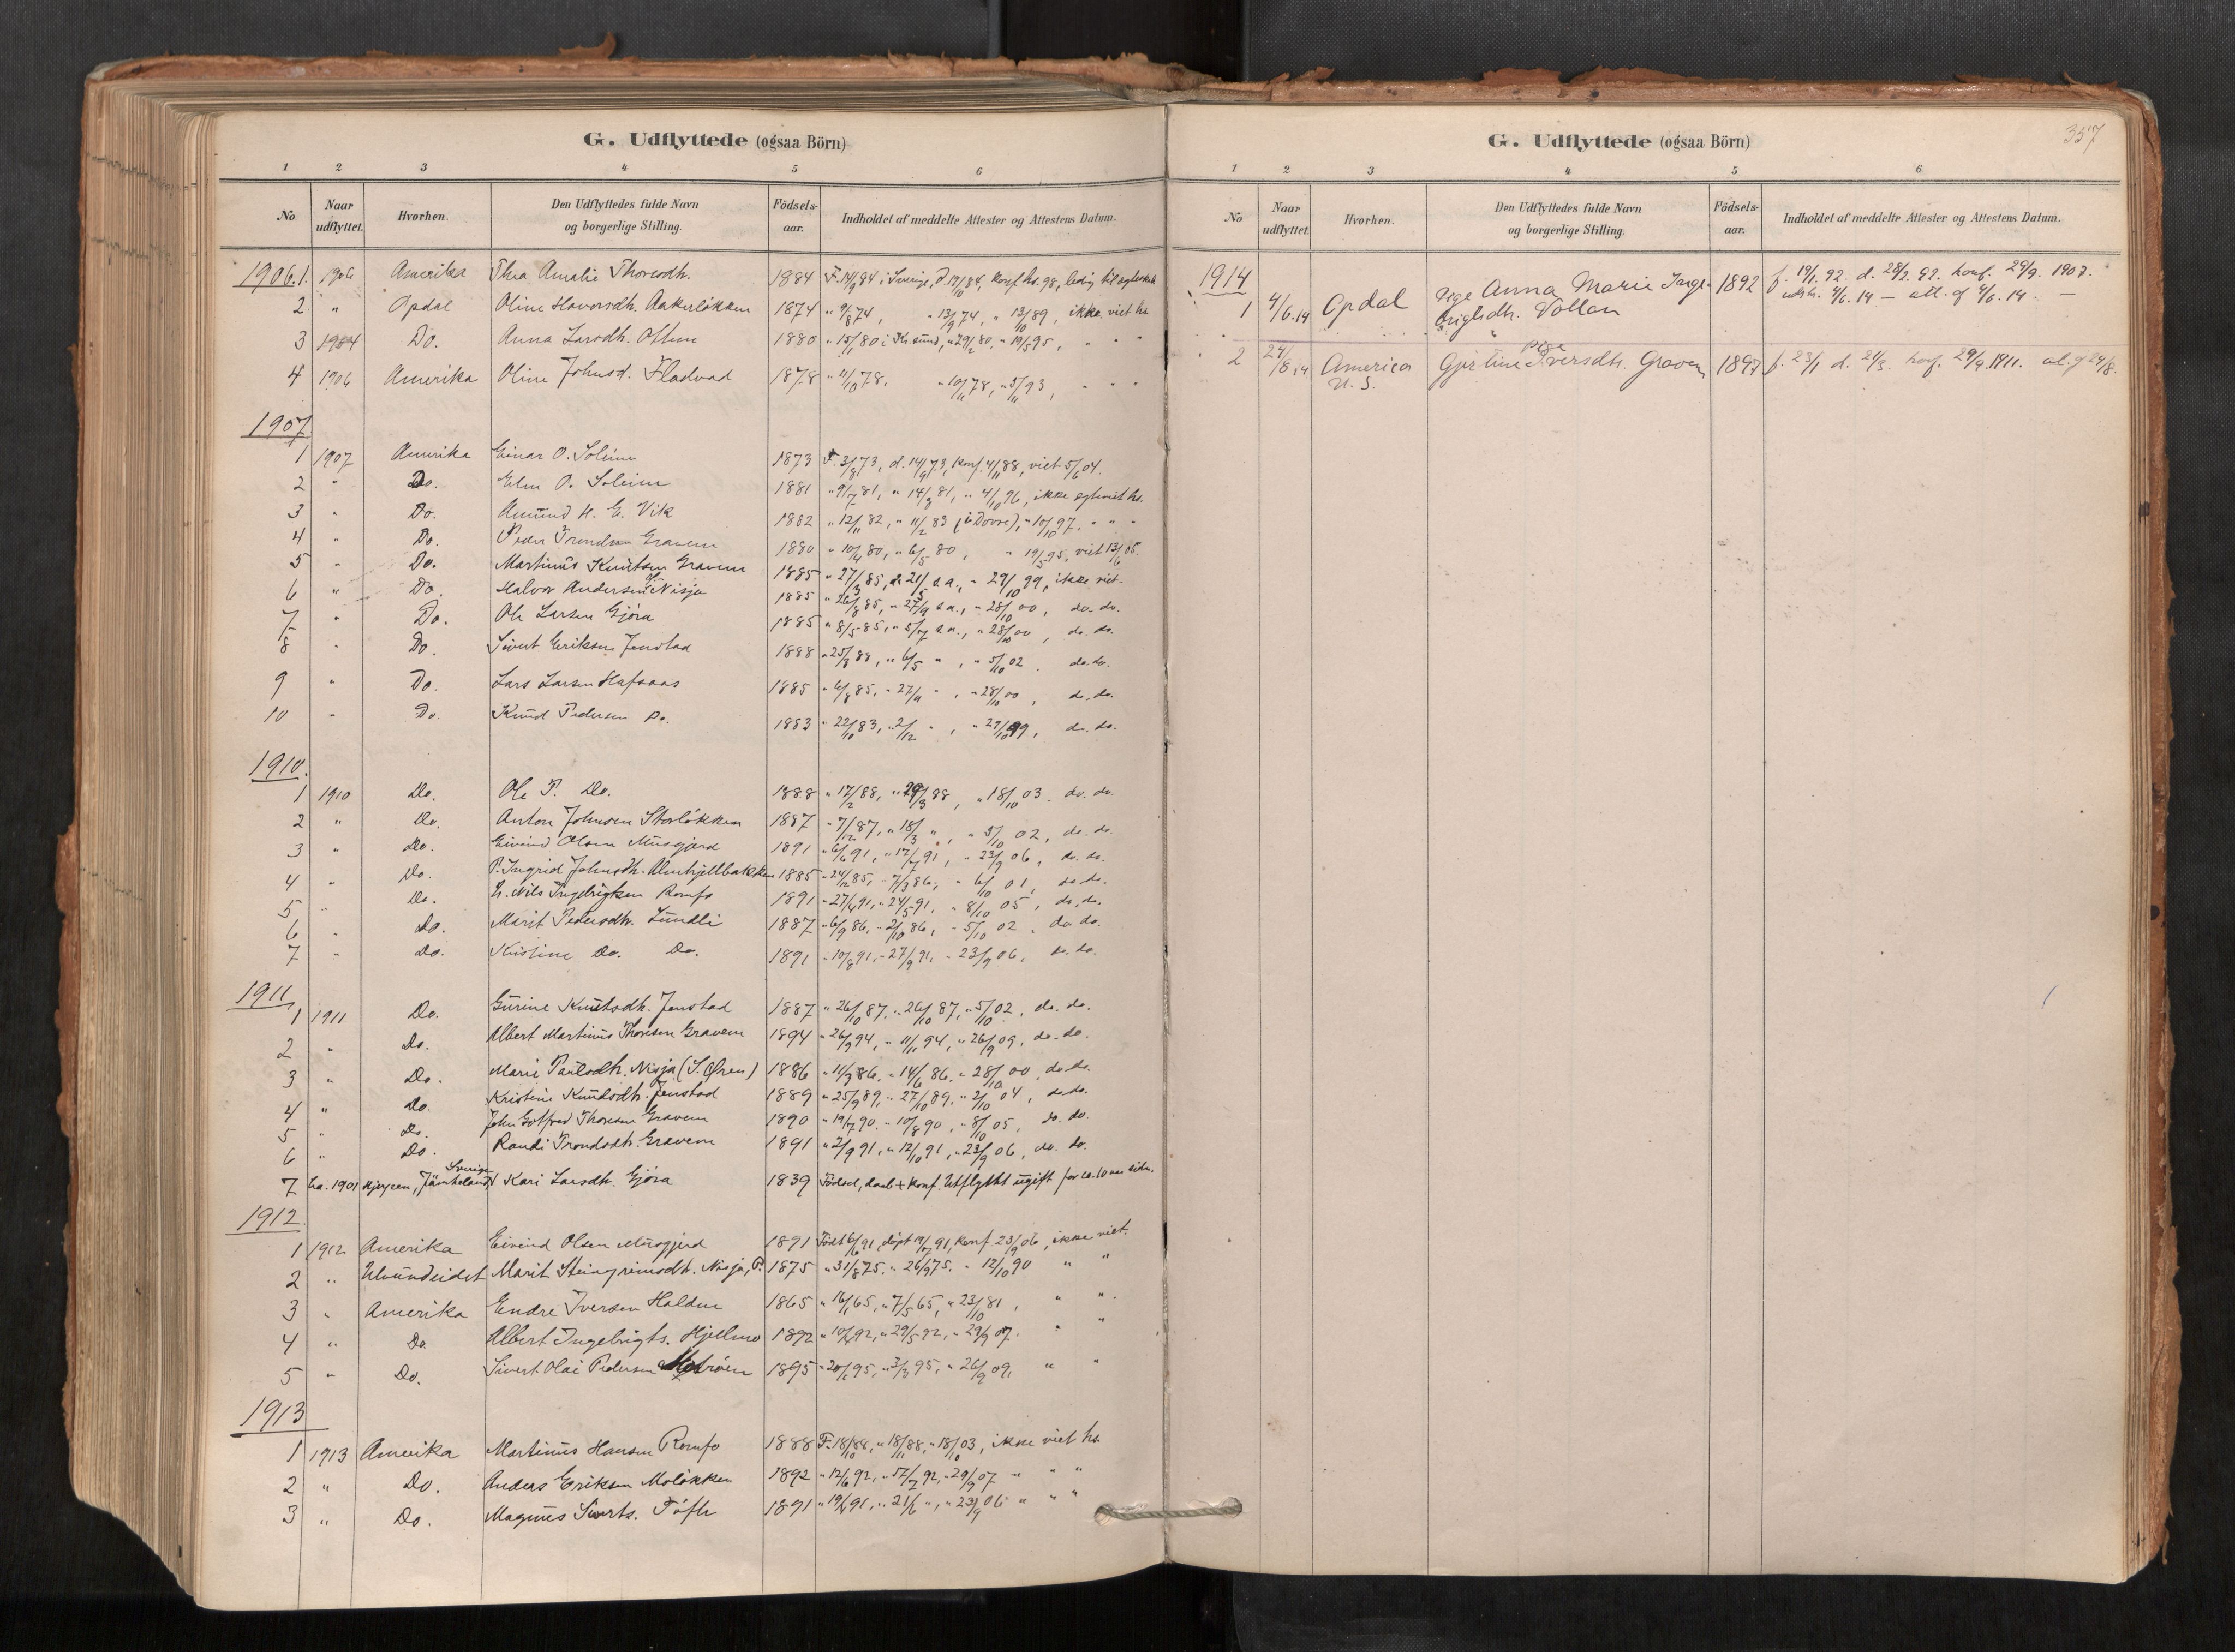 G. Udflyttede (ogsaa Börn)
1 2 3 4 5 6
No Naar udflyttet. Hvorhen. Den Udflyttedes fulde Navn og borgerlige Stilling. Födsels-aar. Indholdet af meddelte Attester og Attestens Datum.
1906. 1. 1906 Amerika Thea Amalie Thoresdh. 1884 F. 14/9 84 i Sverige, d. 19/10 84, konf. hs. 98, ledig til egteskab
2 " Opdal Oline Havorsdh. Aakerløkken 1874 " 9/8 74, " 13/9 74, " 13/10 89, ikke viet hs.
3 1904 Do. Anna Larsdh. 1880 " 15/1 80 i Kr.sund, " 29/2 80, " 19/5 95, " " "
4 1906 Amerika Oline Johnsd. Fladvad 1878 " 11/10 78, " 10/11 78, " 5/11 93, " " "
1907
1 1907 Amerika Einar O. Soleim 1873 F. 3/8 73, d. 14/9 73, konf. 4/11 88, viet 5/6 04.
2 " Do. Elen O. Soleim 1881 " 9/7 81, " 14/8 81, " 4/10 96, ikke egteviet hs.
3 " Do. Amund H. E. Vik 1882 " 12/11 82, " 11/2 83 (i Dovre), " 10/10 97, " " "
4 " Do. Peder Trondsen Gravem 1880 " 10/4 80, " 6/5 80, " 19/5 95, viet 13/6 05.
5 " Do. Martinus Knutsen Gravem 1885 " 27/3 85, d. 21/5 s.a., " 29/10 99, ikke viet.
6 " Do. Halvor Andersen Nisja 1885 " 26/8 85, " 27/9 s.a., " 28/10 00, do. do.
7 " Do. Ole Larsen Gjøra 1885 " 8/5 85, " 5/7 s.a., " 28/10 00, do. do.
8 " Do. Sivert Eriksen Jenstad 1888 " 25/3 88, " 6/5 " , " 5/10 02, do. do.
9 " Do. Lars Larsen Hafsaas 1885 " 6/8 85, " 27/9 " , " 28/10 00, do. do.
10 " Do. Knud Pedersen Do. 1883 " 22/10 83, " 2/12 " , " 29/10 99, do. do.
1910.
1 1910 Do. Ole P. Do. 1888 " 17/2 88, " 29/3 88, " 18/10 03, do. do.
2 " Do. Anton Johnsen Storløkken 1887 " 7/12 87, " 18/3 " , " 5/10 02, do. do.
3 " Do. Eivind Olsen Musgjerd 1891 " 6/6 91, " 17/7 91, " 23/9 06, do. do.
4 " Do. P. Ingrid Johnsdh. Almhjellbakken 1885 " 24/12 85, " 7/3 86, " 6/10 01, do do.
5 " Do. U. Nils Ingebrigtsen Romfo 1891 " 27/4 91, " 24/5 91, " 8/10 05, do. do.
6 " Do. Marit Pedersdh. Lundli 1887 " 6/9 86, " 2/10 86, " 5/10 02, do do.
7 " Do. Kristine Do. Do. 1891 " 10/8 91, " 27/9 91, " 23/9 06, do. do.
1911
1 1911 Do. Gurine Knutsdh. Jenstad 1887 " 26/10 87, " 26/10 87, " 5/10 02, do. do.
2 " Do. Albert Martinus Thoresen Gravem 1894 " 26/9 94, " 11/11 94, " 26/9 09, do. do.
3 " Do. Marie Paulsdh. Nisja (S. Øren) 1886 " 11/3 86, " 14/6 86, " 28/10 00, do do.
4 " Do. Kristine Knudsdh. Jenstad 1889 " 25/9 89, " 27/10 89, " 2/10 04, do do.
5 " Do. John Gotfred Thoresen Gravem 1890 " 19/7 90, " 10/8 90, " 8/10 05, do. do.
6 " Do. Randi Trondsdh. Gravem 1891 " 2/9 91, " 12/10 91, " 23/9 06, do. do.
7 ca. 1901 Hjerpen, Jämtland, Sverige Kari Larsdh. Gjøra 1839 Fødsel, daab + konf. Utflyttet ugift for ca. 10 aar siden.
1912
1 1912 Amerika Eivind Olsen Musgjerd 1891 Født 6/6 91, døpt 19/7 91, konf. 23/9 06, ikke viet.
2 " Ulvundeidet Marit Steingrimsdh. Nisja, P. 1875 " 31/8 75, " 26/9 75, " 12/10 90 " "
3 " Amerika Endre Iversen Halden 1865 " 16/1 65, " 7/5 65, " 23/10 81, " "
4 " Do. Albert Ingebrigts. Hjellmo 1892 " 10/4 92, " 29/5 92, " 29/9 07. " "
5 " Do. Sivert Olai Pedersen 1895 " 20/1 95, " 3/3 95, " 26/9 09, " "
1913
1 1913 Amerika Martinus Hansen Romfo 1888 F. 18/10 88, " 18/11 88, " 18/10 03, ikke viet hs.
2 " Do. Anders Eriksen Moløkken 1892 " 12/6 92, " 17/7 92, " 29/9 07 " " "
3 " Do. Magnus Siverts. Tøfte 1891 " 19/4 91, " 21/6 " , " 23/9 06 " " "
357
G. Udflyttede (ogsaa Börn)
1 2 3 4 5 6
No Naar udflyttet. Hvorhen. Den Udflyttedes fulde Navn og borgerlige Stilling. Födsels-aar. Indholdet af meddelte Attester og Attestens Datum.
1914
1 4/6.14 Opdal Pige Anna Marie Inge- 1892 f. 19/1.92. d. 28/2.92. konf. 29/9. 1907.
brigtsdh. Vollan udsk. 4/6.14 — att. af 4/6.14. —
2 24/8.14 America U.S. Pige Gjertine Iversdh. Gravem 1897 f. 23/1 d. 21/3. konf. 24/9.1911. at. af 24/8.